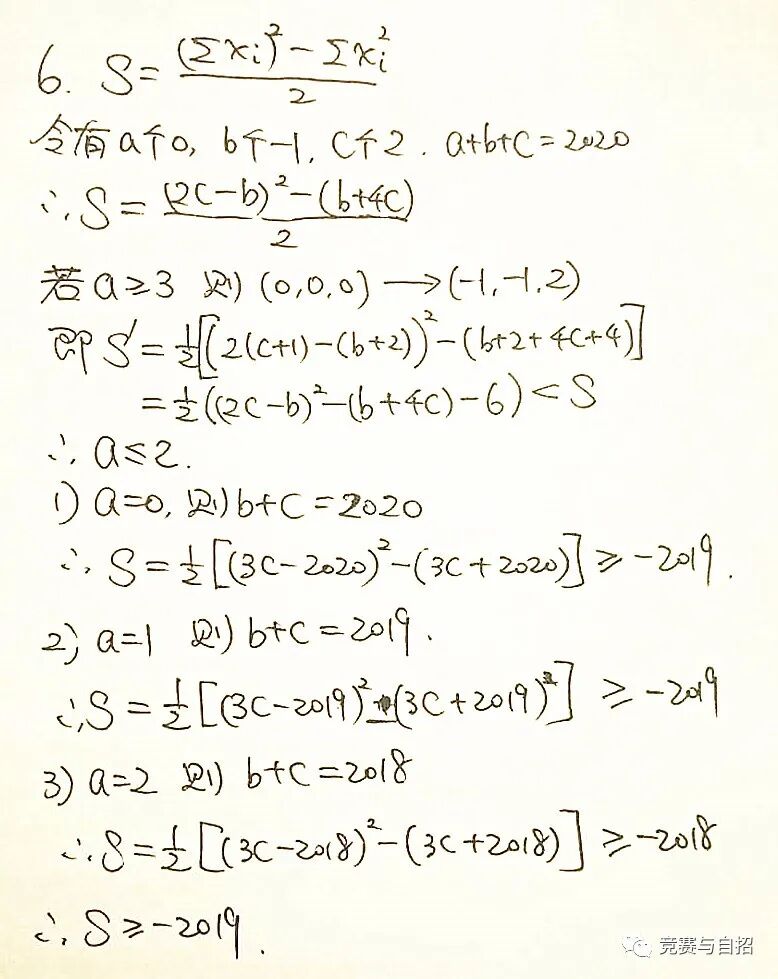 6. S = \frac{(Σxᵢ)² - Σxᵢ²}{2}
令有a个0, b个-1, c个2. a+b+c=2020
∴ S = \frac{(2c-b)² - (b+4c)}{2}
若 a≥3 则 (0,0,0) → (-1,-1,2)
即 S' = ½[(2(c+1)-(b+2))² - (b+2+4c+4)]
= ½((2c-b)² - (b+4c) - 6) < S
∴ a≤2.
1) a=0, 则 b+c=2020
∴ S = ½[(3c-2020)² - (3c+2020)] ≥ -2019.
2) a=1 则 b+c=2019.
∴ S = ½[(3c-2019)² - (3c+2019)] ≥ -2019
3) a=2 则 b+c=2018
∴ S = ½[(3c-2018)² - (3c+2018)] ≥ -2018
∴ S ≥ -2019.
竞赛与自招